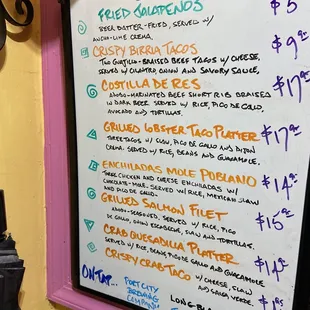 FRIED JALAPEÑOS $5
BEER BATTER-FRIED, SERVED W/
ANCHO-LIME CREMA.
CRISPY BIRRIA TACOS $9
TWO GUAJILLO-BRAISED BEEF TACOS W/ CHEESE,
SERVED W/ CILANTRO ONION AND SAVORY SAUCE,
COSTILLA DE RES $17
ADOBO-MARINATED BEEF SHORT RIB BRAISED
IN DARK BEER. SERVED W/ RICE, PICO DE GALLO,
AVOCADO AND TORTILLAS.
GRILLED LOBSTER TACO PLATTER $17
THREE TACOS W/ SLAW, PICO DE GALLO AND DIJON
CREMA. SERVED W/ RICE, BEANS AND GUACAMOLE.
ENCHILADAS MOLE POBLANO $14
THREE CHICKEN AND CHEESE ENCHILADAS W/
CHOCOLATE-MOLE. SERVED W/ RICE, MEXICAN SLAW
AND PICO DE GALLO
GRILLED SALMON FILET $15
ADOBO-SEASONED, SERVED W/ RICE, PICO
DE GALLO, SLAW AND TORTILLAS.
CRAB QUESADILLA PLATTER $14
SERVED W/ RICE, BEANS, PICO DE GALLO AND GUACAMOLE
CRISPY CRAB TACO W/ CHEESE, SLAW
AND SALSA VERDE.
ON TAP...
FORT CITY
BREWING
COMPANY
LONG BLACK